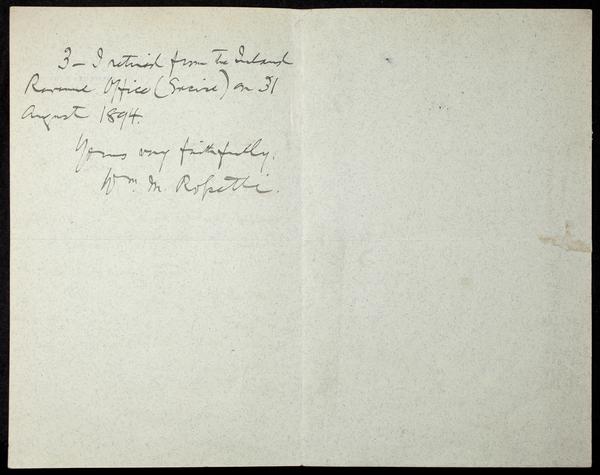 3 – I retired from the Inland
Revenue Office (Excise) on 31
August 1894.
Yours very faithfully,
Wm. M. Rossetti.